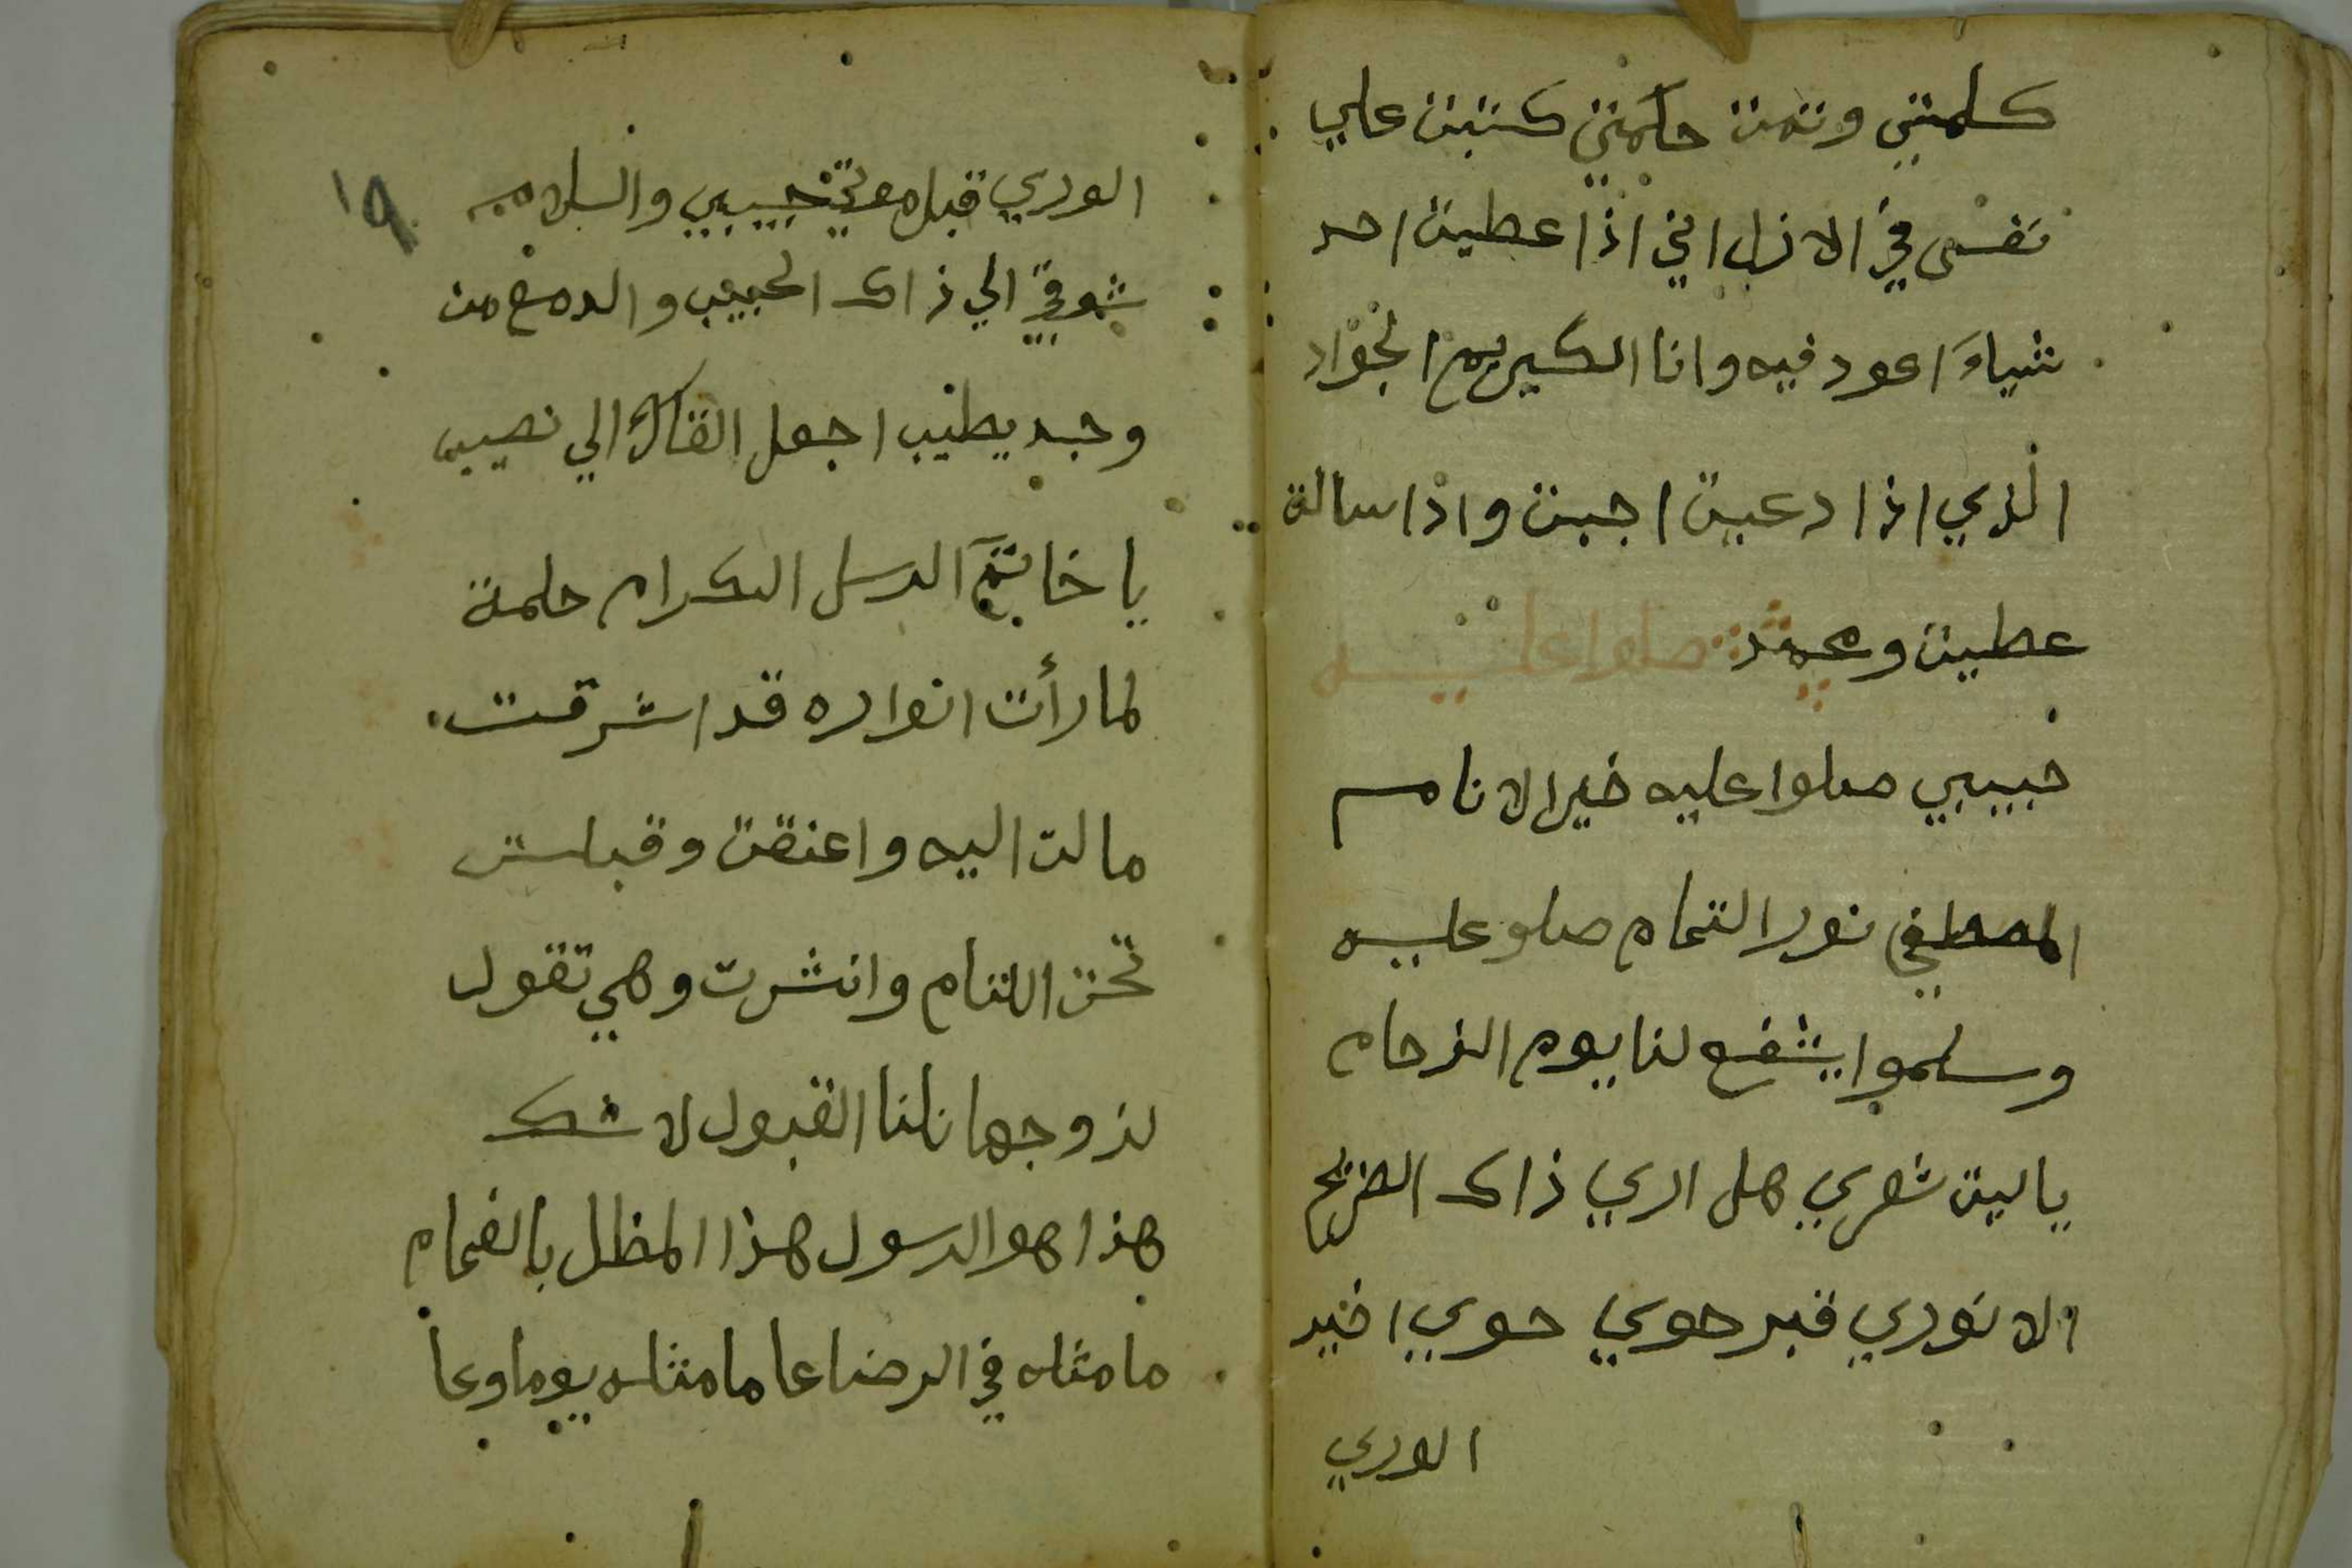 كلمتي وتمت حكمتي كتبت علي
نفسى في الازل اني اذا عطيت احد
شياء اعود فيه وانا الكريم الجواد
الذي اذا دعيت اجبت واذا سالة
عطيت ومحمد صلوا عليه
حبيبي صلوا عليه خير الانام
المصطفي نور التمام صلو عليه
وسلموا يشفع لنا يوم الزحام
ياليت شعري هل اري ذاك الضريح
الانوري قبر حوي حوي اخير
الوري
الوري قبل موتي حبيبي والسلام
١٩
شوقي الي ذاك الحبيب والدمع من
وجد يطيب اجعل القاك الي نصيب
يا خاتم الرسل الكرام حلمة
لما رأت انواره قد اشرقت
مالت اليه واعنقت وقبلت
تحت اللثام وانثرت وهي تقول
لزوجها نلنا القبول لا شك
هذا هو الرسول هذا المظل بالغمام
ما مثله في الرضاعا ما مثله يوما وعا